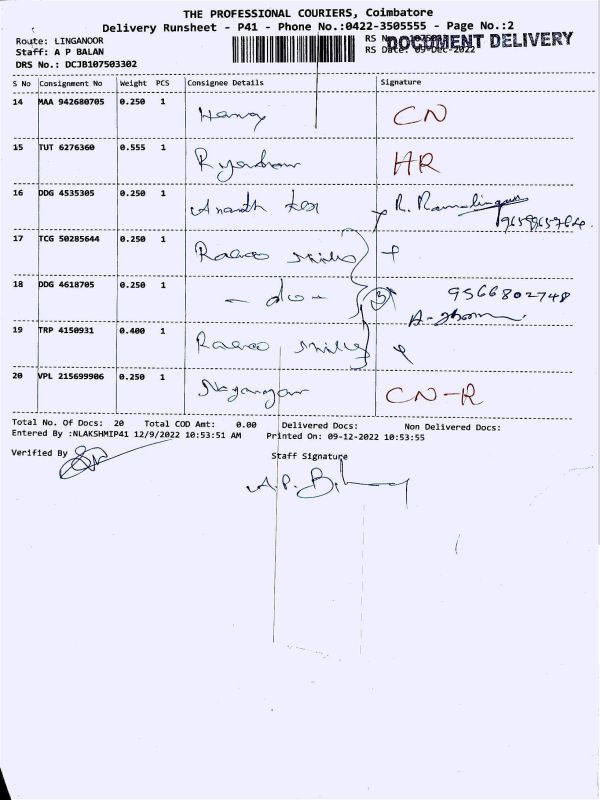 THE PROFESSIONAL COURIERS, Coimbatore
Delivery Runsheet - P41 - Phone No.:0422-3505555 - Page No.:2
Route: LINGANOOR
Staff: A P BALAN
DRS No.: DCJB107503302
RS Date: 09-Dec-2022
DOCUMENT DELIVERY
S No Consignment No Weight PCS Consignee Details Signature
14 MAA 942680705 0.250 1 CN
15 TUT 6276360 0.555 1 HR
16 DDG 4535305 0.250 1 R. Ramalingam
17 TCG 50285644 0.250 1
18 DDG 4618705 0.250 1 - do - 3 9566802748
19 TRP 4150931 0.400 1
20 VPL 215699906 0.250 1 CN-R
Total No. Of Docs: 20 Total COD Amt: 0.00 Delivered Docs: Non Delivered Docs:
Entered By :NLAKSHMIP41 12/9/2022 10:53:51 AM Printed On: 09-12-2022 10:53:55
Verified By
Staff Signature
A.P.